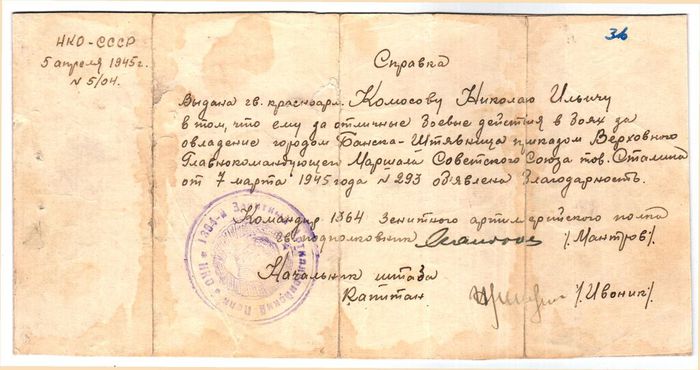 36
НКО-СССР
5 апреля 1945г.
N 5/04.
Справка
Выдана гв. красноарм. Комосову Николаю Ильичу
в том, что ему за отличные боевые действия в боях за
овладение городом Банска-Штявница приказом Верховного
Главнокомандующего Маршала Советского Союза тов. Сталина
от 7 марта 1945 года N 293 объявлена благодарность.
Командир 1364 зенитного артиллерийского полка
гв. подполковник /Мантров/.
Начальник штаба
Капитан /Ивоник/.